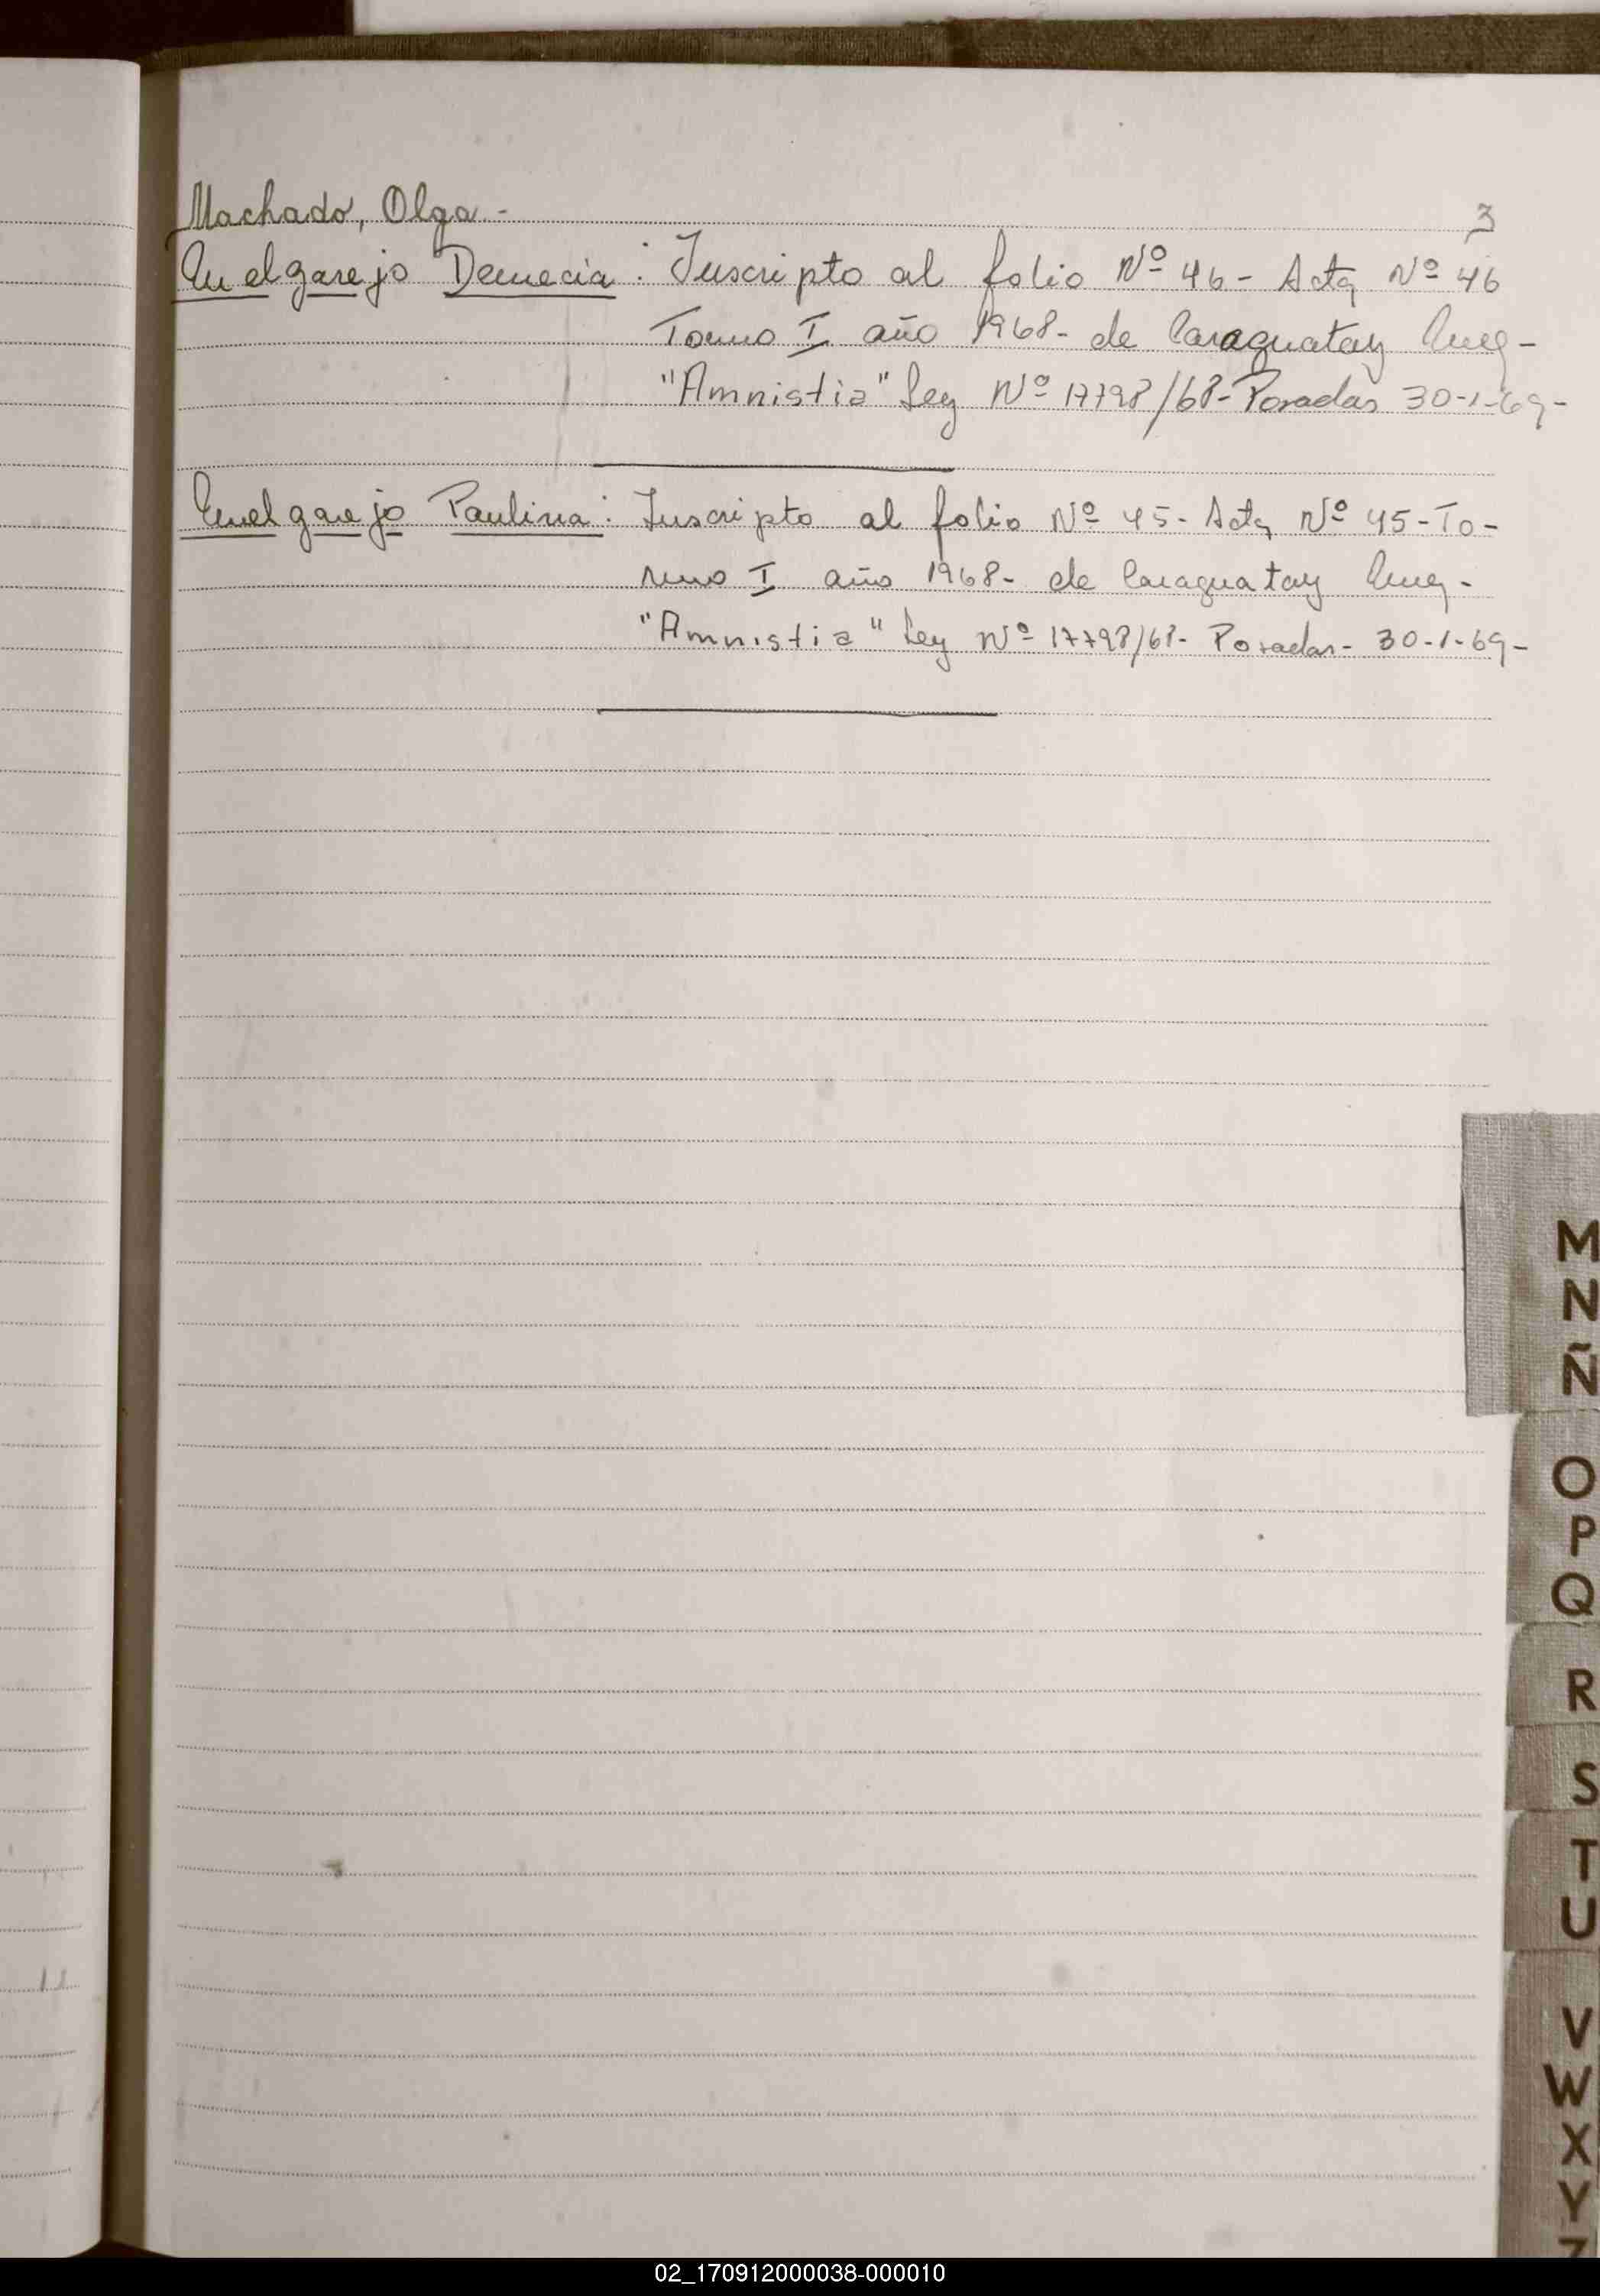 Machado, Olga -
3
Melgarejo Demecia : Inscripto al folio Nº 46 - Acta Nº 46
Tomo I año 1968 - de Caraguatay
"Amnistia" Ley Nº 17798/68 - Posadas 30-1-69 -
Melgarejo Paulina : Inscripto al folio Nº 45 - Acta Nº 45 - To-
mo I año 1968 - de Caraguatay
"Amnistia" Ley Nº 17798/68 - Posadas - 30-1-69 -
M
N
Ñ
O
P
Q
R
S
T
U
V
W
X
Y
Z
02_170912000038-000010